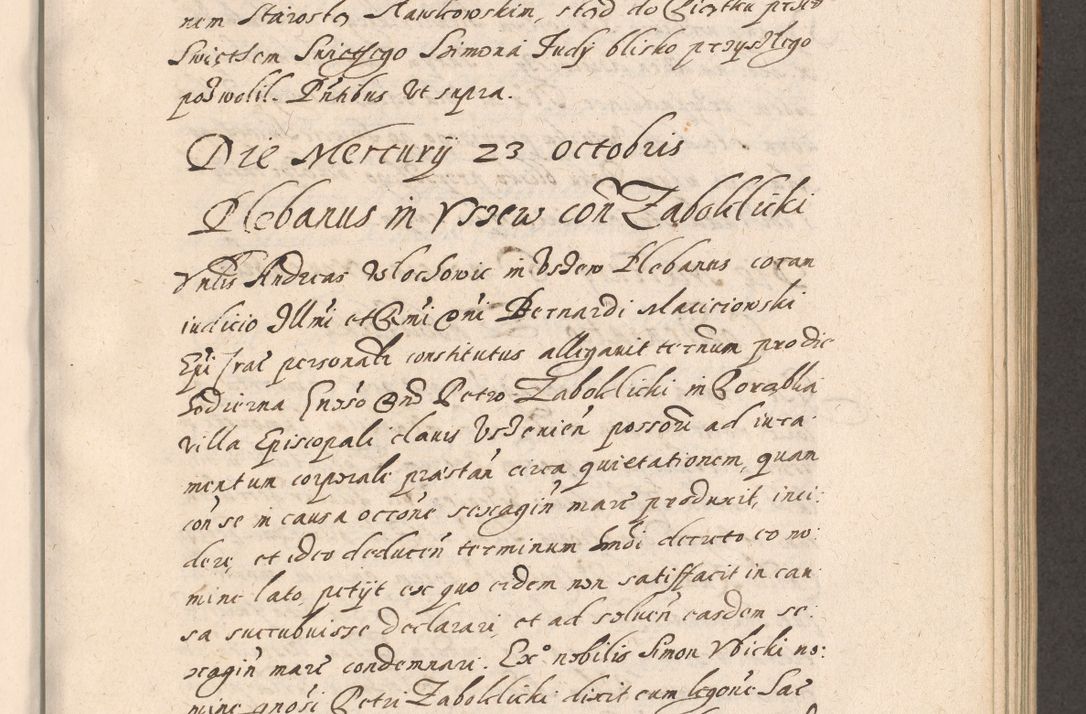 nem Starostą Sławkowskim, stąd do Piątku przed
Swiętem Swiętego Szimona Judÿ blisko przyszłego
pozwolil. Pñtibus ut supra.
Die Mercurÿ 23 octobris
Plebanus in Vszew coñ Zaboklicki
Vnlis Andreas Wlochowic in Uszew Plebanus coram
iudicio Illmi et Rmi Dni Bernardi Macieiowski
Epi Crac personali constitutus allegavit termum pro die
hodierna Gnoso Dno Petro Zaboklicki in Porąbka
villa Episcopali clavis Uszevień possori ad iura
mentum corporale præstań circa quietationem, quam
coń se in causa occone sexagiń marc produxit, inci
dere, et ideo deduceń terminum hmoi decreto eo no
mine lato, petÿt ex quo eidem non satisffacit in cau
sa succubuisse declarari, et ad solueń easdem se
xagiń marc condemnari. Exo nobilis Simon Vbicki no:
mine gnosi Petri Zaboklicki dixit eum legone Sac